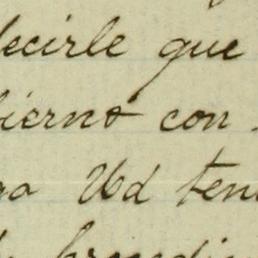 decirle que
bierno con
ga Ud ten